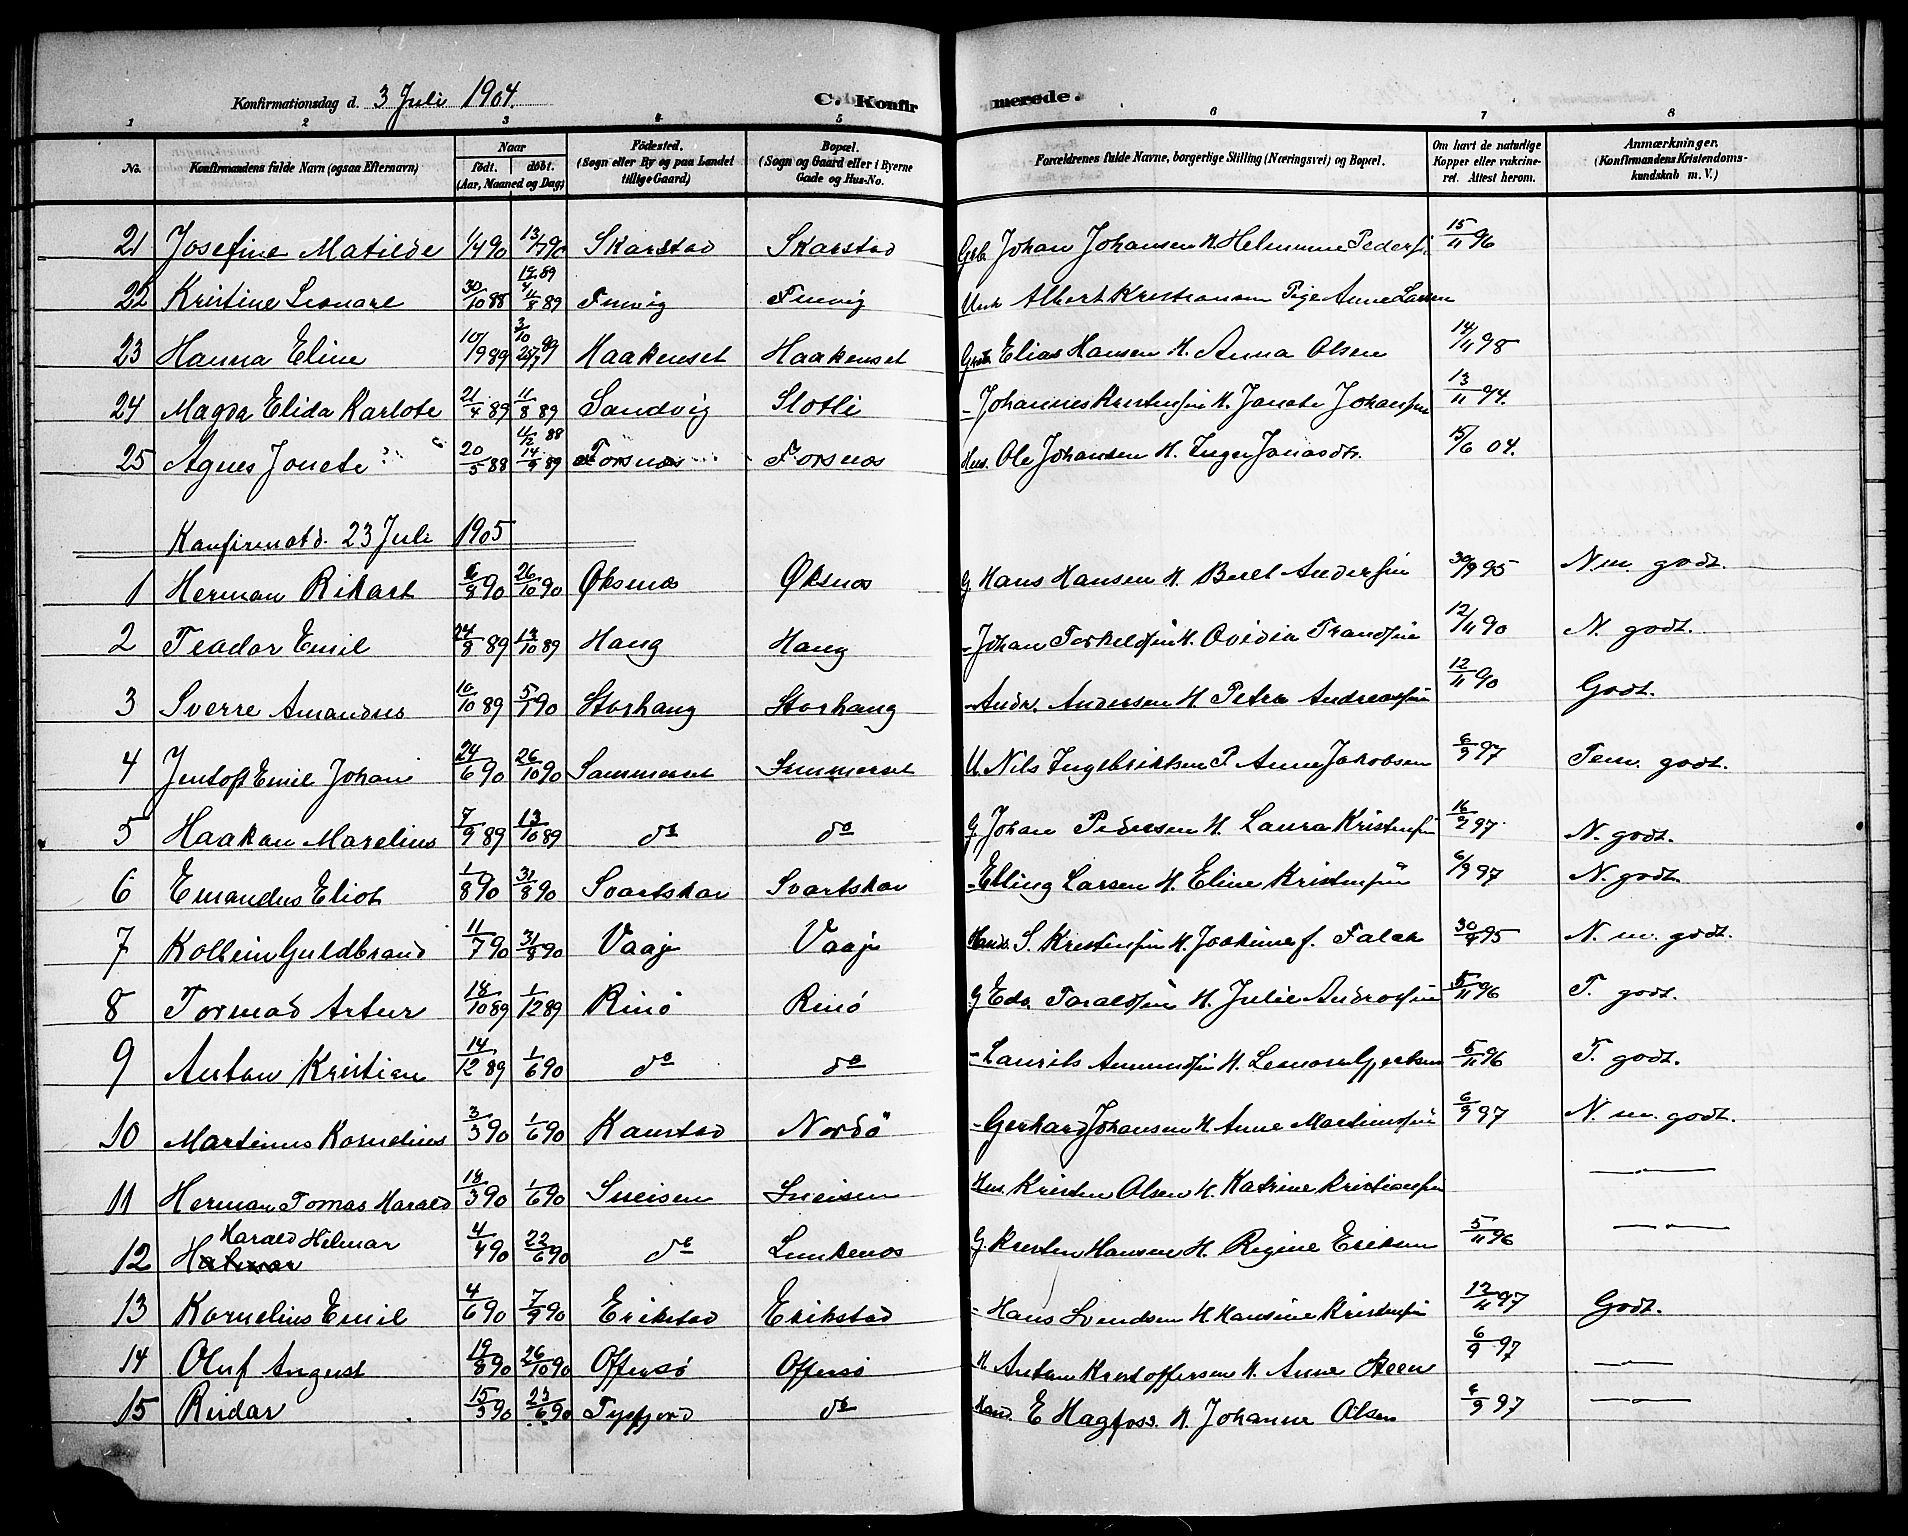 Konfirmationsdag d. 3 Juli 1904. C. Konfirmerede.
1 2 3 4 5 6 7 8
No. Konfirmandens fulde Navn (ogsaa Efternavn) Naar født. døbt. (Aar, Maaned og Dag) Fødested. (Sogn eller By og paa Landet tillige Gaard) Bopæl. (Sogn og Gaard eller i Byerne Gade og Hus-No. Forældrenes fulde Navne, borgerlige Stilling (Næringsvei) og Bopæl. Om havt de naturlige Kopper eller vakcineret. Attest herom. Anmærkninger. (Konfirmandens Kristendomskundskab m. V.)
21 Josefine Matilde 1/4 90 13/7 90 Skarstad Skarstad Johan Johansen H. Helmine Peders 15/11 96
22 Kristine Leonare 30/10 88 11/8 89 Finvig Finvig Unk Albert Kristiansen Pige Anne Larsen
23 Hanna Eline 10/9 89 Haakenset Haakenset Elias Hansen H. Anna Olsen 14/11 98
24 Magda Elida Karlote 21/4 89 11/8 89 Sandvig Slotli - Johannes Kristensen H. Janete Johansen 13/11 94.
25 Agnes Jonete 20/5 88 14/9 89 Forsnæs Forsnæs Hus. Ole Johansen H. Inger Jonasdtr. 15/6 04.
Konfirmatd. 23 Juli 1905
1 Herman Rikart 6/8 90 26/10 90 Øksnæs Øksnæs G Hans Hansen H. Berel Andersen 30/9 95 N. m. godt.
2 Teador Emil 24/8 89 13/10 89 Haug Haug - Johan Torkeldsen H. Ovidia Trandsen 12/11 90 N. godt.
3 Sverre Amandus 10/10 89 5/1 90 Storhaug Storhaug - Andr. Andersen H Petra Andreassen 12/11 90 Godt.
4 Jentoft Emil Johan 24/6 90 26/10 90 Sommerset Sommerset U. Nils Ingebriktsen P Anne Jakobsen 6/9 97 Tem. godt.
5 Haakon Marelius 7/9 89 13/10 89 do do G Johan Pedersen H. Laura Kristensen 16/2 97. N. godt.
6 Emandus Eliot 1/8 90 31/8 90 Svartskar Svartskar - Elling Larsen H. Eline Kristensen 6/9 97 N. godt
7 Kolbein Guldbrand 11/7 90 31/8 90 Vaaje Vaaje Hand. S. Kristensen H. Joakime f. Falch 30/9 95 N. m. godt.
8 Tormod Artur 18/10 89 1/12 89 Rinø Rinø G Edv. Taraldsen H. Julie Andreassen 5/11 96 T. godt.
9 Anton Kristian 14/12 89 1/6 90 do do - Laurits Amundsen H. Leonore Gjertsen 5/11 96 T. godt.
10 Martinus Kornelius 3/3 90 1/6 90 Kanstad Nordø - Gerhard Johansen H Anne Martinussen 6/9 97 N. m. godt.
11 Herman Tomas Harald 18/3 90 1/6 90 Sneisen Sneisen Hus Kristen Olsen H. Katrine Kristiansen —"—
12 Harald Hilmar 4/4 90 22/6 90 do Lunkenæs G. Kristen Hansen H. Regine Eriksen 5/11 96 —"—
13 Kornelius Emil 4/6 90 7/9 90 Erikstad Erikstad - Hans Svendsen H Hansine Kristensen 12/11 97 Godt.
14 Oluf August 19/8 90 26/10 90 Offersø Offersø H Anton Kristoffersen H. Anne Steen 6/9 97 —"—
15 Reidar 15/3 90 23/6 90 Tysfjord do Hand. E Hagfoss. H. Johanne Olsen 6/9 97 —"—